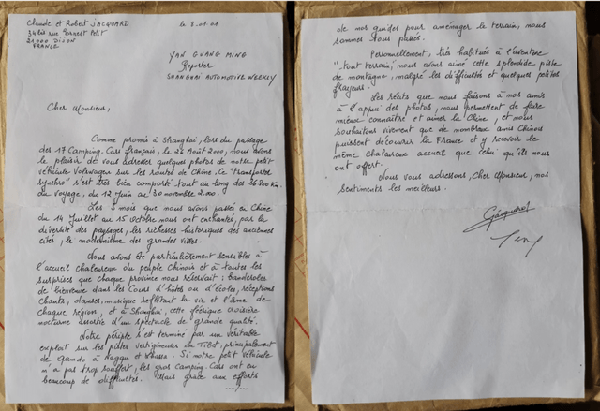 Claude et Robert JACQUARD
34 bis rue Ernest Petit
21000 DIJON
FRANCE
le 5.01.01
YAN GUANG MING
Reporter
SHANGHAI AUTOMOTIVE WEEKLY
Cher Monsieur,
Comme promis à Shanghai, lors du passage
des 17 Camping-Cars français, le 22 Août 2000, nous avons
le plaisir de vous adresser quelques photos de notre petit
véhicule Volkswagen sur les routes de Chine. Ce "transporter
syncro" s'est très bien comporté tout au long des 36 200 km
du voyage, du 12 Juin au 30 novembre 2000.
Les 3 mois que nous avons passé en Chine
du 14 Juillet au 15 Octobre nous ont enchantés, par la
diversité des paysages, les richesses historiques des anciennes
cités, le modernisme des grandes villes.
Nous avons été particulièrement sensibles à
l'accueil chaleureux du peuple Chinois et à toutes les
surprises que chaque province nous réservait : banderoles
de bienvenue dans les cours d'hôtels ou d'écoles, réceptions
chants, danses, musique reflétant la vie et l'âme de
chaque région, et à Shanghai, cette féerique croisière
nocturne assortie d'un spectacle de grande qualité.
Notre périple s'est terminé par un véritable
exploit sur les pistes vertigineuses du Tibet, principalement
de à et Lhassa. Si notre petit véhicule
n'a pas trop souffert, les gros Camping-Cars ont eu
beaucoup de difficultés. Mais grâce aux efforts
de nos guides pour aménager le terrain, nous
sommes tous passés.
Personnellement, très habitués à l'aventure
"tout terrain", nous avons aimé cette splendide piste
de montagne, malgré les difficultés et quelques petites
frayeurs.
Les récits que nous faisons à nos amis
à l'appui des photos, nous permettent de faire
mieux connaître et aimer la Chine, et nous
souhaitons vivement que de nombreux amis Chinois
puissent découvrir la France et y recevoir le
même chaleureux accueil que celui qu'ils nous
ont offert.
Nous vous adressons, Cher Monsieur, nos
sentiments les meilleurs.
CJacquard